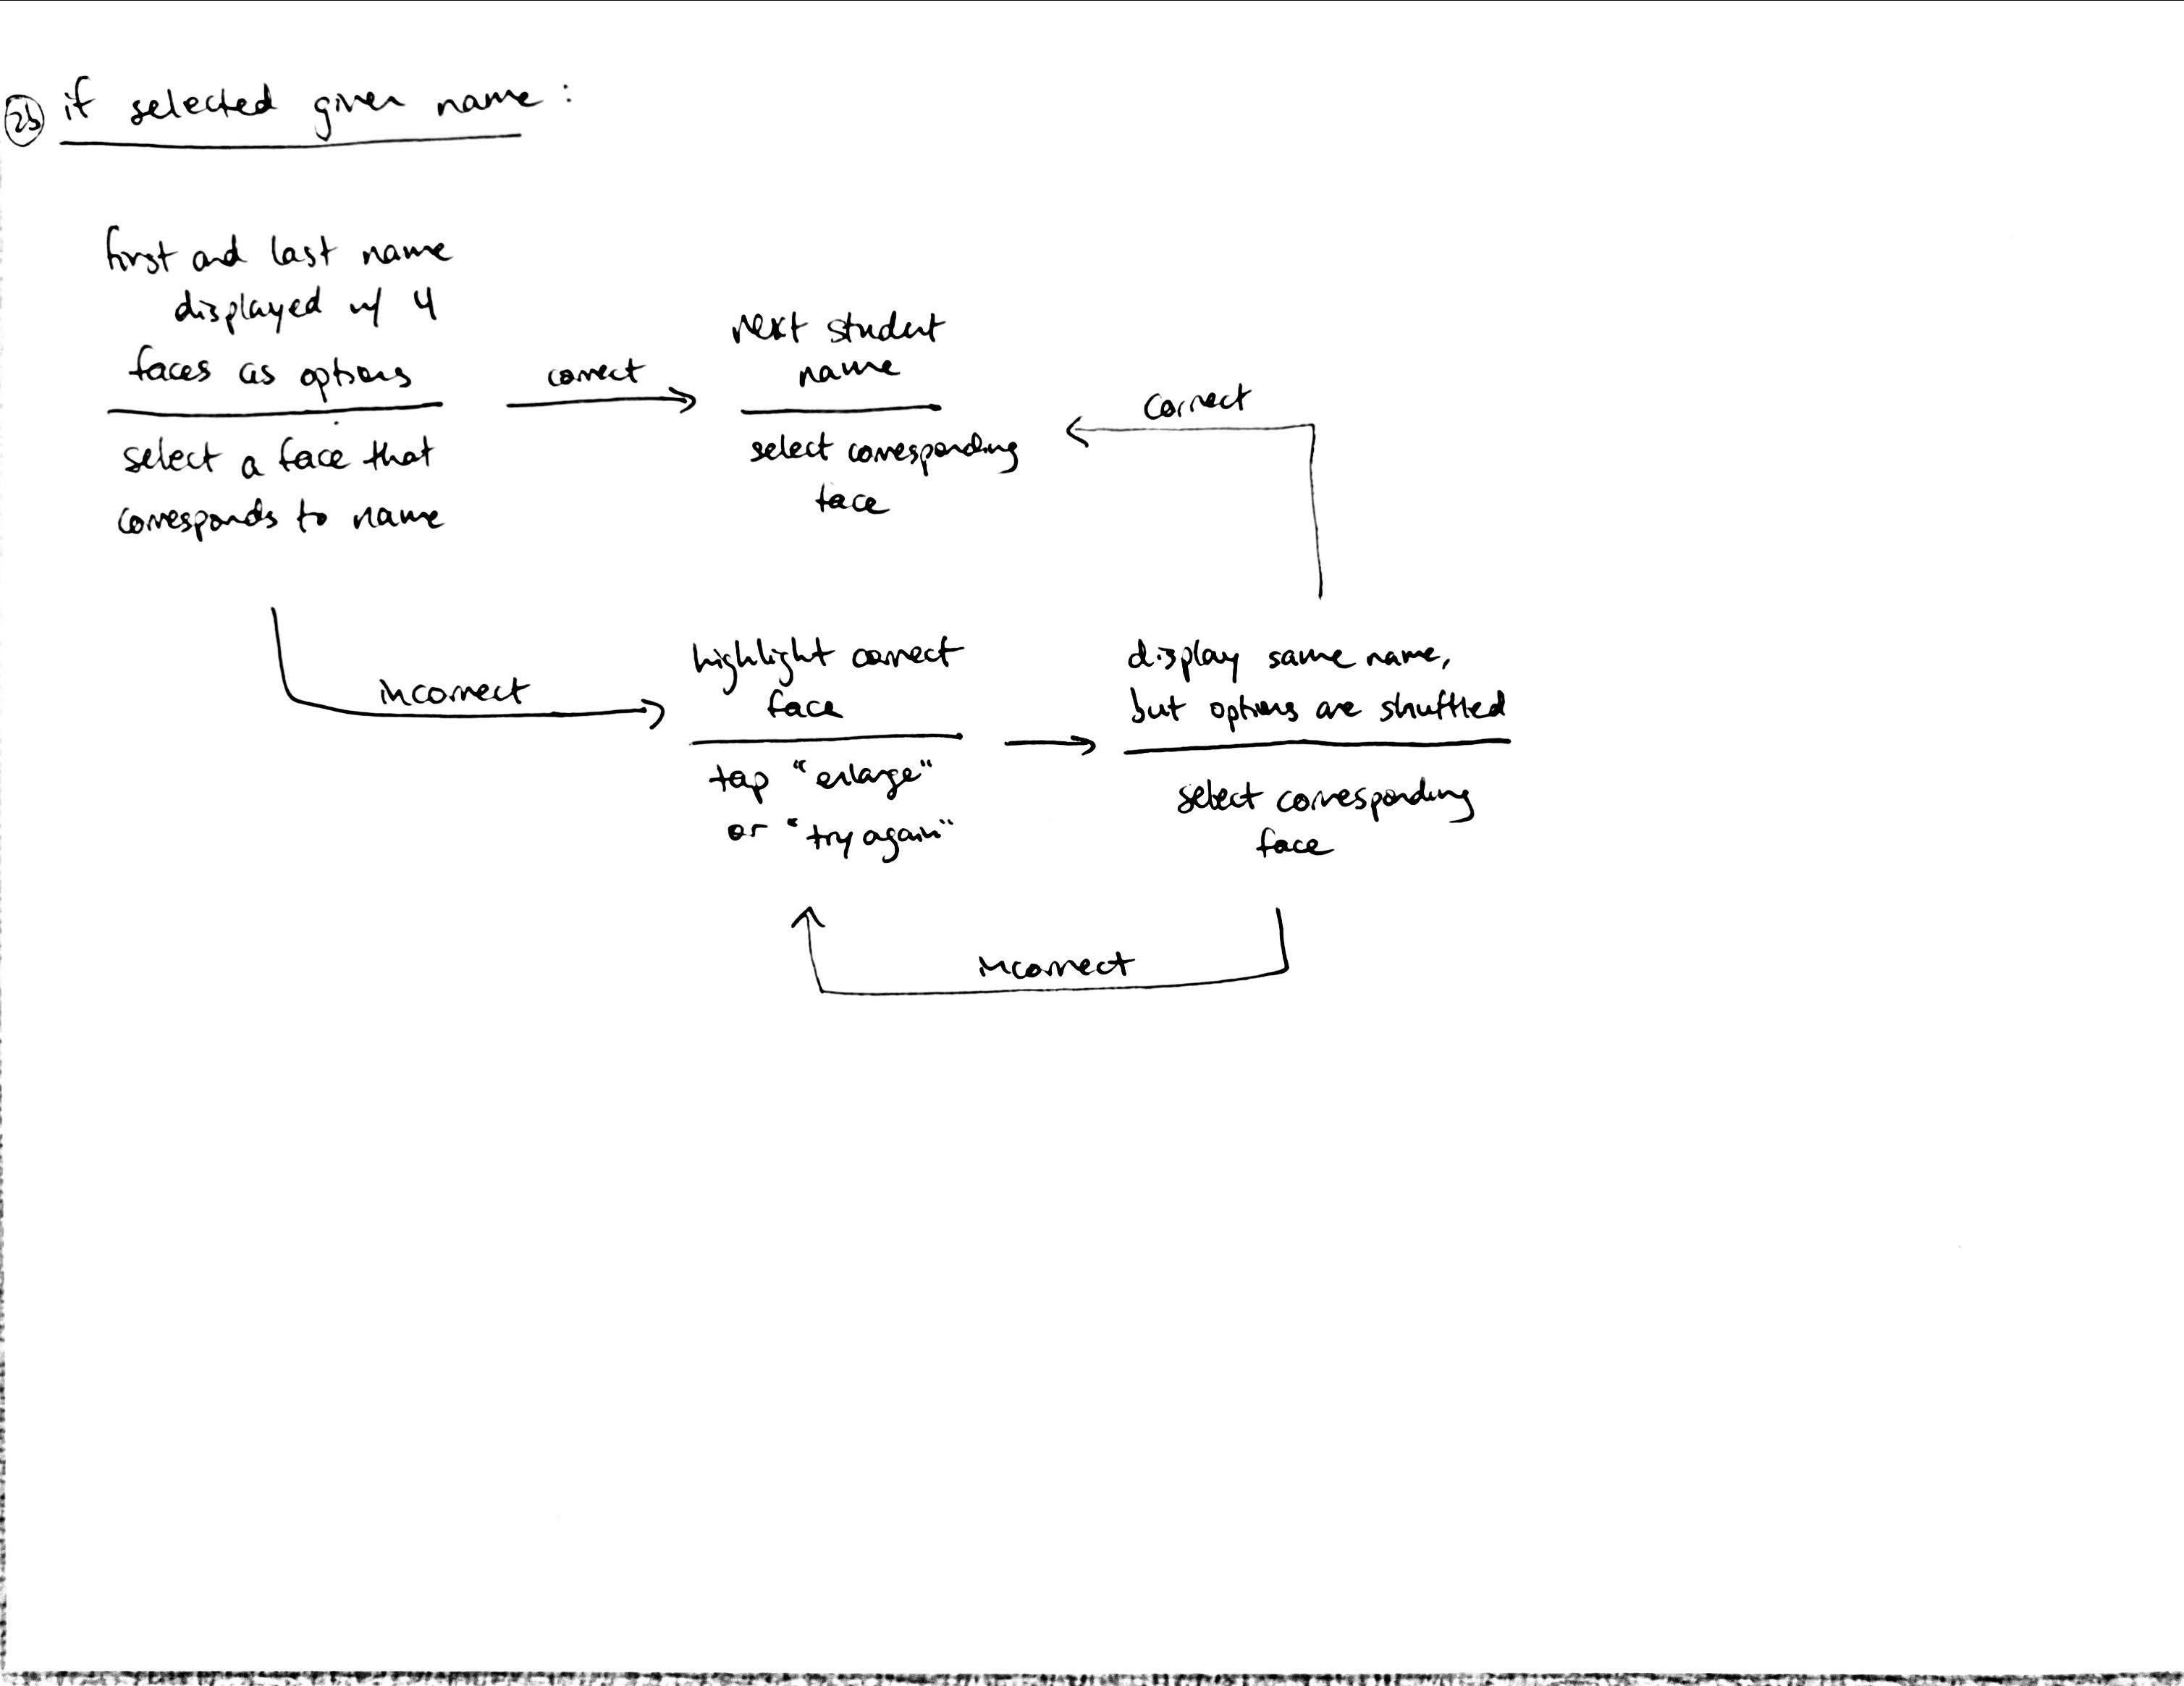 2b if selected given name:
first and last name
displayed w/ 4
faces as options
select a face that
corresponds to name
correct
next student
name
select corresponding
face
correct
incorrect
highlight correct
face
tap "enlarge"
or "try again"
display same name,
but options are shuffled
select corresponding
face
incorrect